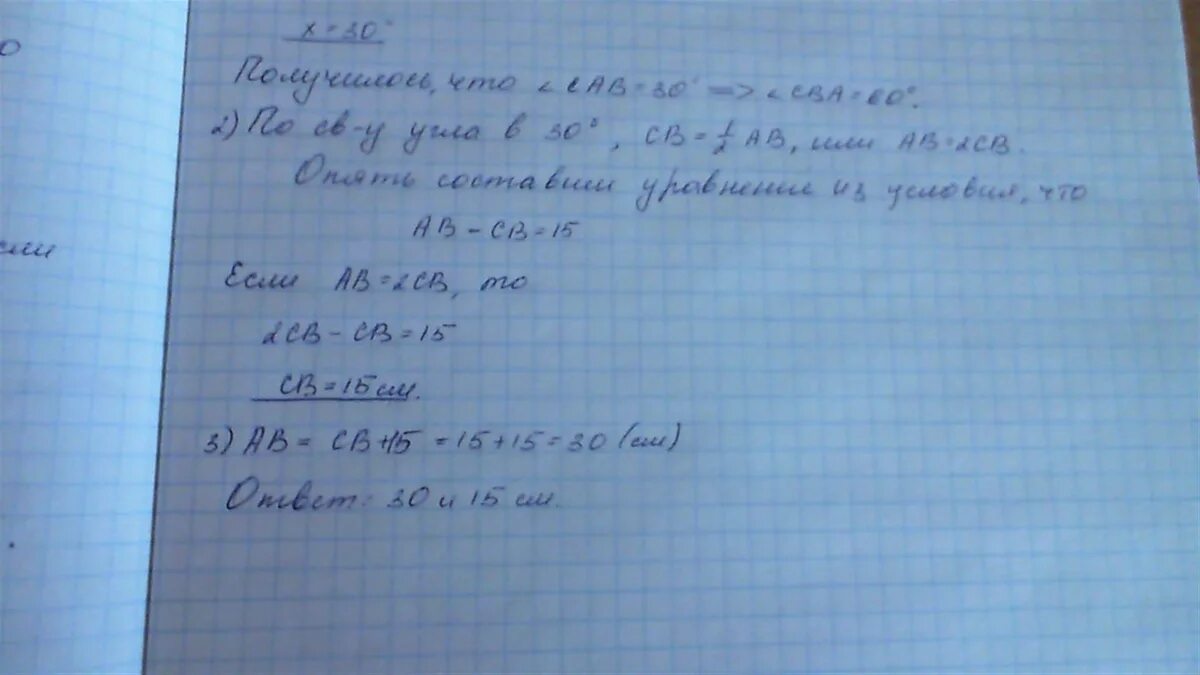 х = 30°
Получилось, что ∠CAB=30° => ∠CBA=60°.
2) По св-у угла в 30°, CB=½AB, или AB=2CB.
Опять составим уравнение из условия, что
AB - CB = 15
Если AB=2CB, то
2CB - CB = 15
CB = 15 см.
3) AB = CB+15 = 15+15 = 30 (см)
Ответ: 30 и 15 см.